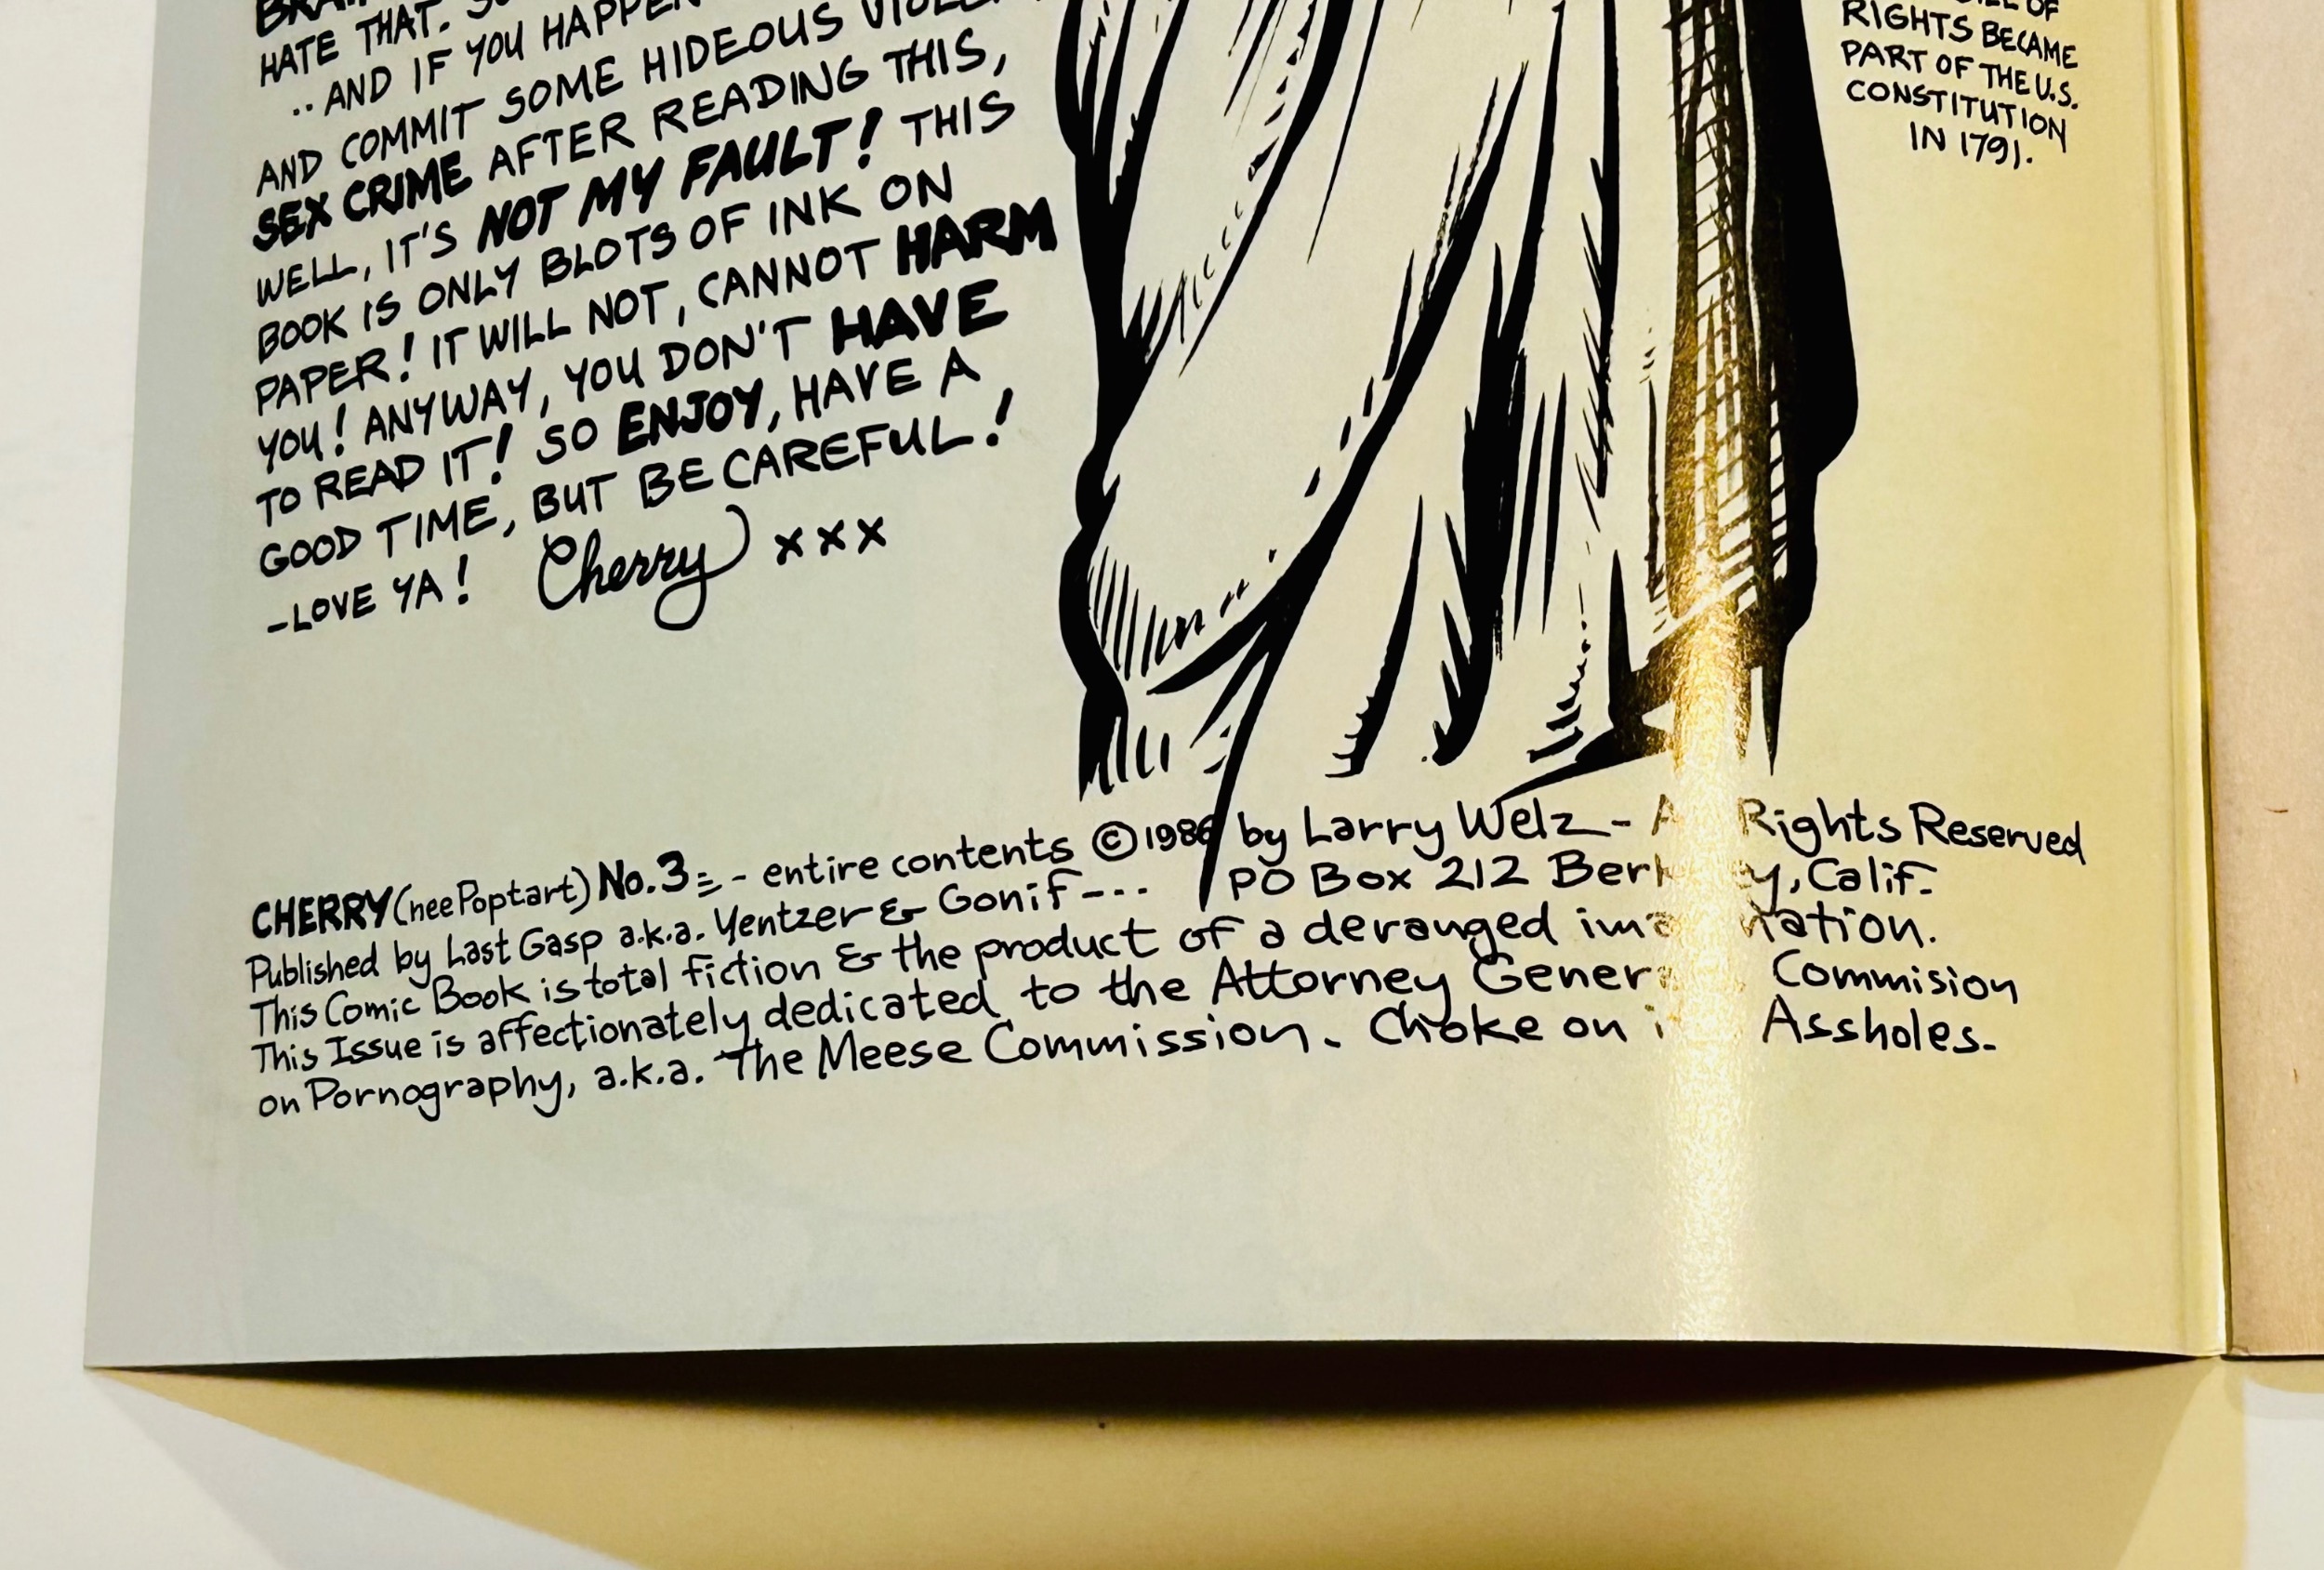 HATE THAT.
..AND IF YOU HAPPEN
AND COMMIT SOME HIDEOUS
SEX CRIME AFTER READING THIS,
WELL, IT'S NOT MY FAULT! THIS
BOOK IS ONLY BLOTS OF INK ON
PAPER! IT WILL NOT, CANNOT HARM
YOU! ANYWAY, YOU DON'T HAVE
TO READ IT! SO ENJOY, HAVE A
GOOD TIME, BUT BE CAREFUL!
-LOVE YA! Cherry xxx
OF
RIGHTS BECAME
PART OF THE U.S.
CONSTITUTION
IN 1791.
CHERRY (nee Poptart) No.3 - entire contents © 1986 by Larry Welz - Rights Reserved
Published by Last Gasp a.k.a. Yentzer & Gonif --- PO Box 212 Berkeley, Calif.
This Comic Book is total fiction & the product of a deranged imagination.
This Issue is affectionately dedicated to the Attorney General Commision
on Pornography, a.k.a. The Meese Commission. Choke on Assholes.